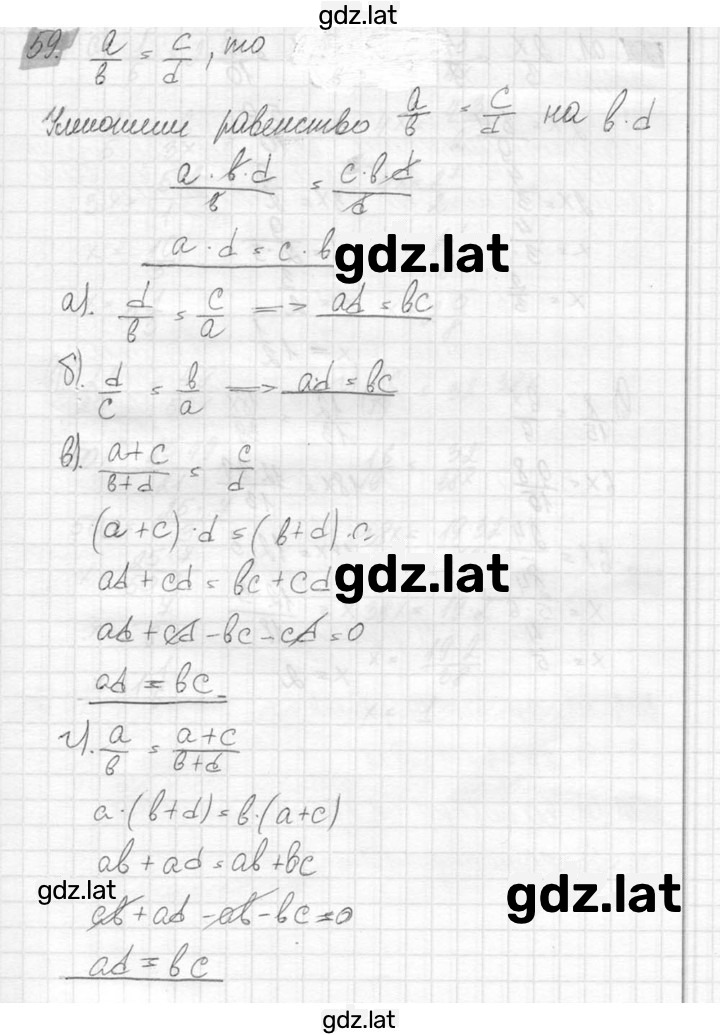 gdz.lat
59. a/в = c/d, то
Умножим равенство a/в = c/d на в·d
a·в·d/в = c·в·d/d
a·d = c·в
gdz.lat
а). d/в = c/a => ad = вc
б). d/c = в/a => ad = вc
в). a+c/в+d = c/d
(a+c)·d = (в+d)·c
ad+cd = вc+cd
gdz.lat
ad+cd-вc-cd=0
ad = вc
г). a/в = a+c/в+d
a·(в+d)=в·(a+c)
aв+ad=aв+вc
gdz.lat
gdz.lat
aв+ad-aв-вc=0
ad=вc
gdz.lat